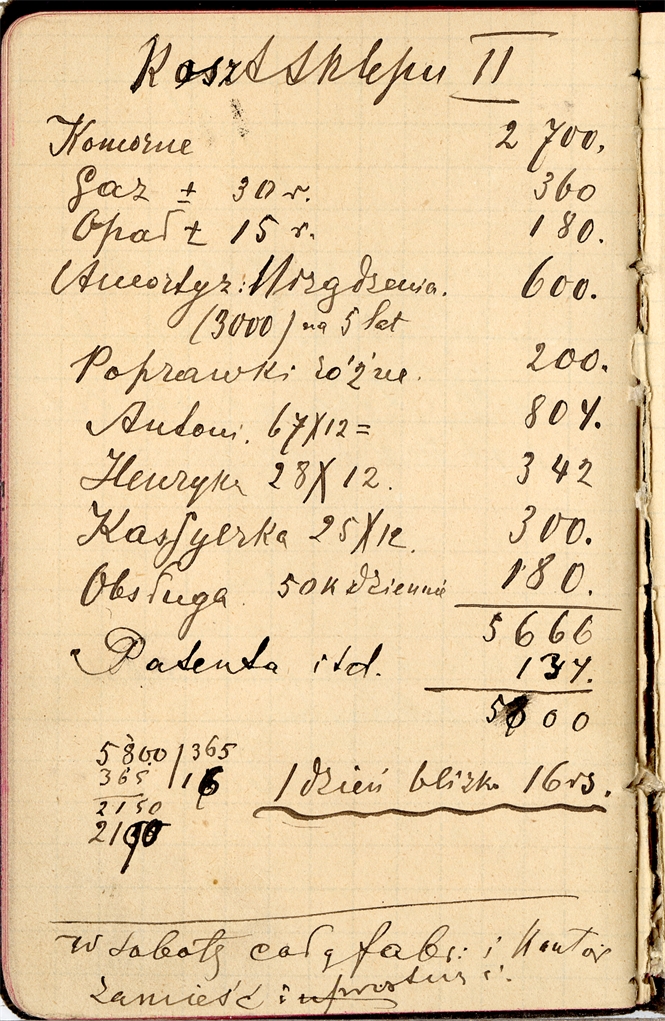 Koszt Sklepu II
Komorne 2 700.
Gaz ± 30 r. 360
Opał ± 15 r. 180.
Amortyz: Urządzenia. 600.
(3000) na 5 lat
Poprawki różne. 200.
Antoni. 67X12= 804.
Henryka 28X12. 342
Kassyerka 25X12. 300.
Obsługa. 50 k dziennie 180.
5666
Patenta itd. 134.
5800
5800 / 365
365 / 16
2150
1 dzień blizko 16 rs.
2190
w sobotę całą fabr: i Kantor
zamieść i